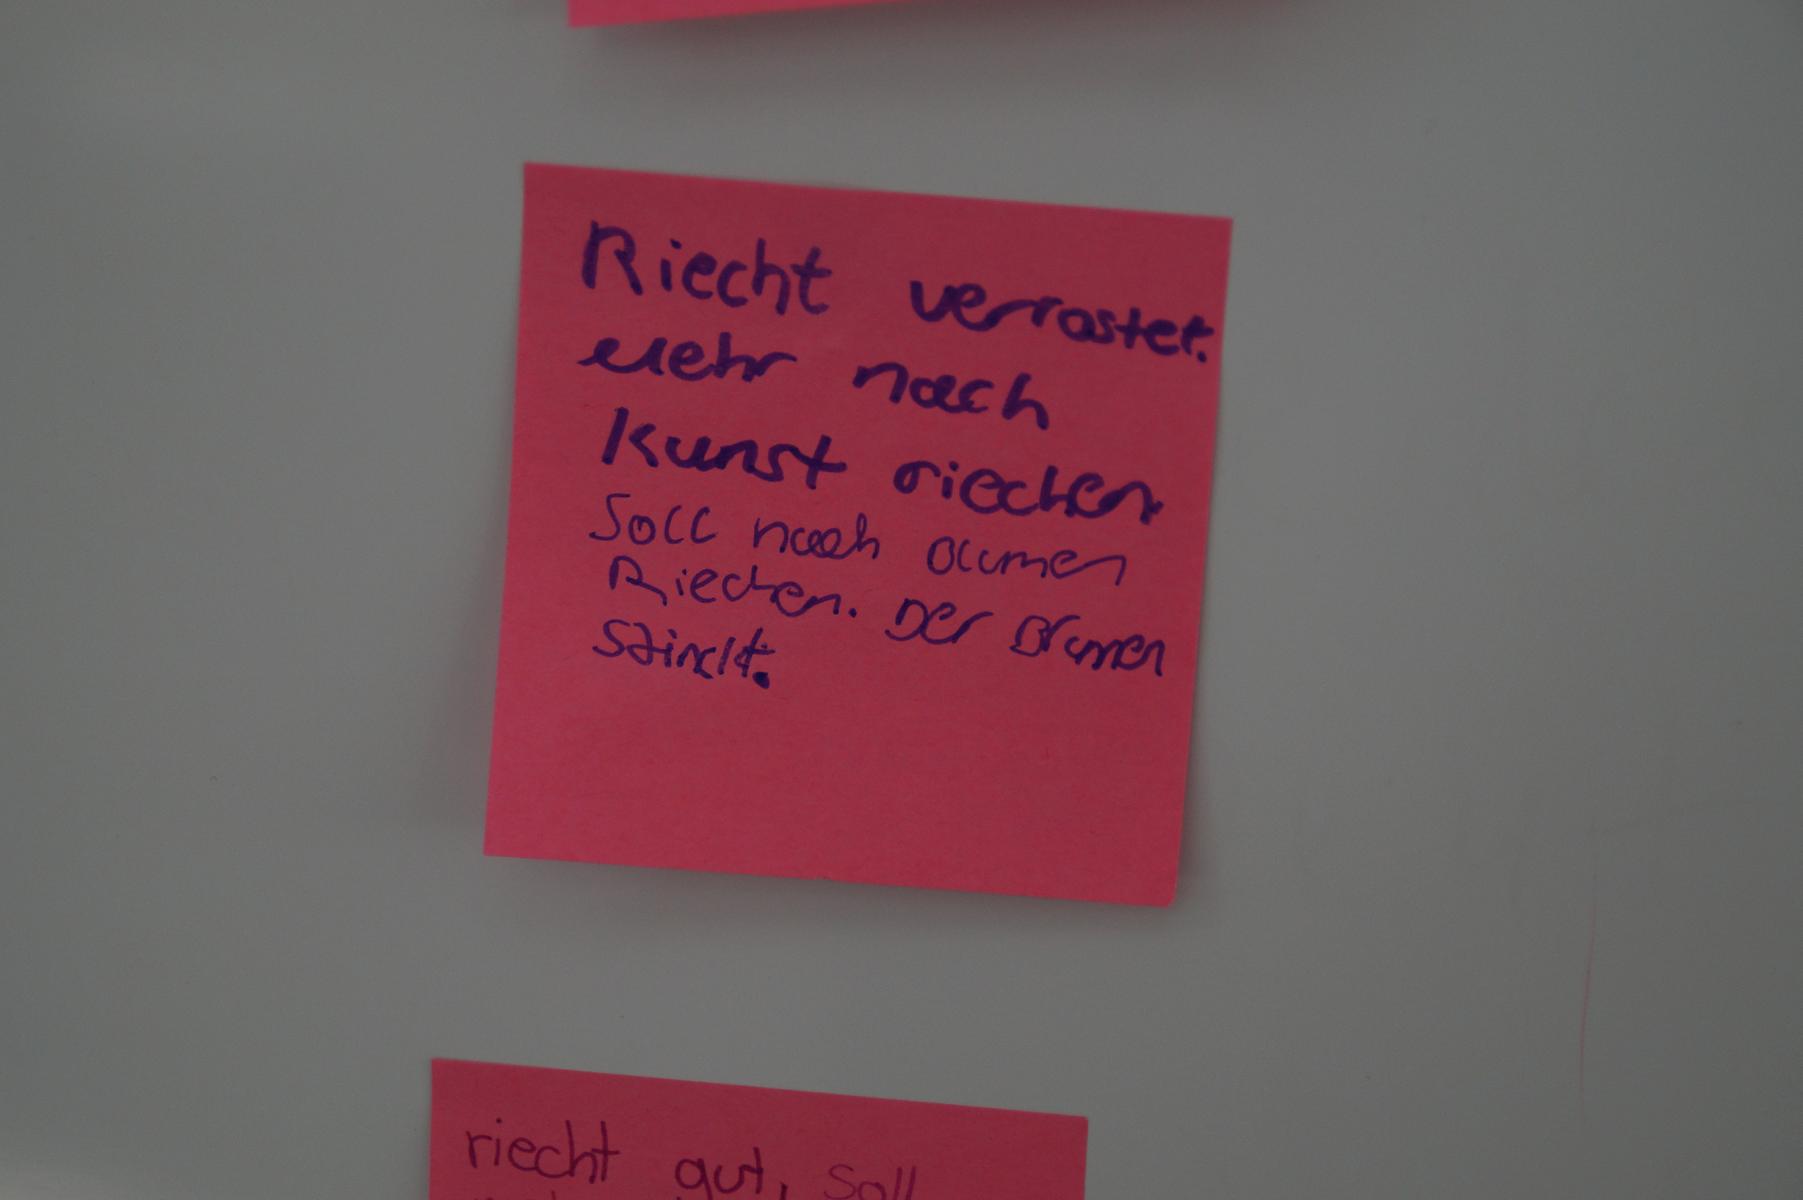 Riecht verrostet.
Mehr nach
Kunst riechen
Soll nach Blumen
Riechen. Der Brunnen
Stinkt.
riecht gut, soll